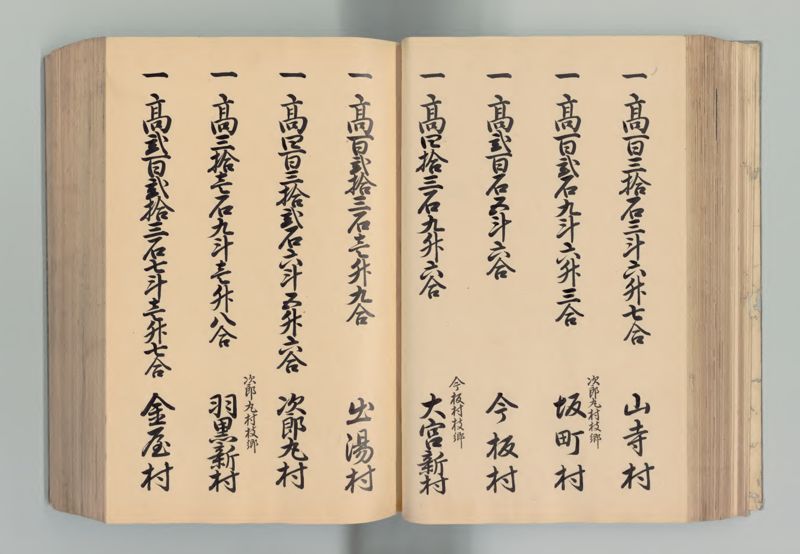 一 高百三拾石三斗六升七合 山寺村
一 高百弐石九斗六升三合 次郎丸村枝郷 坂町村
一 高弐百石五斗六合 今板村
一 高四拾三石九升六合 今板村枝郷 大宮新村
一 高百弐拾三石壱升九合 出湯村
一 高四百三拾弐石六斗五升六合 次郎丸村
一 高三拾壱石九斗壱升八合 次郎丸村枝郷 羽黒新村
一 高弐百弐拾三石七斗壱升七合 金屋村